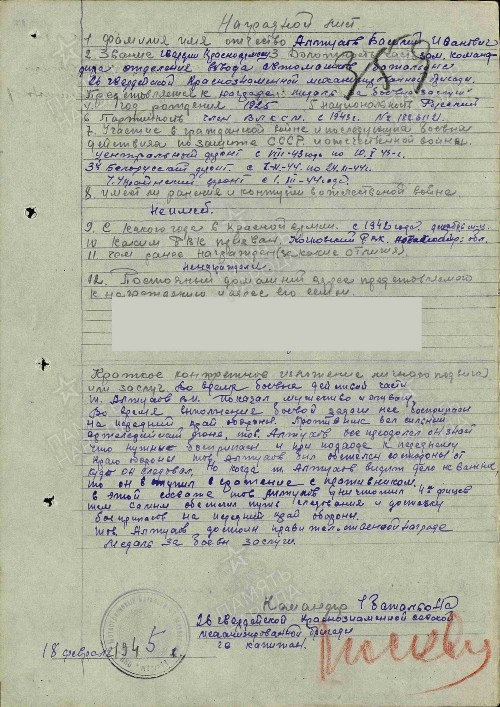 Наградной лист
1 Фамилия имя отчество Алтухов Василий Иванович
2 Звание гвардии Красноармеец 3 Должность зам. коман-
дира отделения взвода автоматч. батальона
26 гвардейской Краснознаменной механизированной бригады.
Представляется к награде: медаль "За боевые заслуги"
4. Год рождения 1925 5 национальность Русский
6 Партийность член ВЛКСМ. с 1943г. №
7. Участие в гражданской войне и последующих боевых
действиях по защите СССР и отечественной войны.
Центральный фронт с VIII-43 года по
3й Белорусский фронт. с
Украинский фронт с III-44 года.
8 имеет ли ранения и контузии в отечественной войне
Не имеет.
9. С какого года в Красной армии. с 1942 года. декабрь м-ц.
10 Каким РВК призван,
11 Чем ранее награжден (за какие отличия)
ненагражден.
12. Постоянный домашний адрес представляемого
к награждению и адрес его семьи.
Краткое конкретное изложение личного подвига
или заслуг. Во время боевых действий части
т. Алтухов В.И. Показал мужество и отвагу.
Во время выполнение боевой задачи нес боеприпасы
на передний край обороны. Противник вел сильный
артиллерийский огонь, тов. Алтухов все преодолел он знал
что нужны боеприпасы и при подходе к переднему
краю обороны тов. Алтухов был обстелен со стороны от
куда он следовал. Но когда т. Алтухов видит дело к
то он вступил в сражение с противником.
в этой схватке тов Алтухов уничтожил 4х фрицев
тем самым обеспечил путь следования и доставку
боеприпасов на передний край обороны.
тов. Алтухов достоин правительственной награде
Медаль За боевые заслуги.
Командир 1 Батальона
26 гвардейской Краснознаменной
механизированной бригады
гв капитан.
18 февраля 1945 г.
Москву